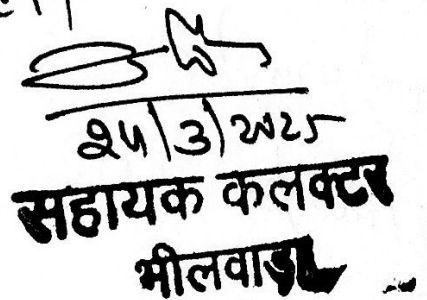 २५|3|2025
सहायक कलक्टर
भीलवाड़ा